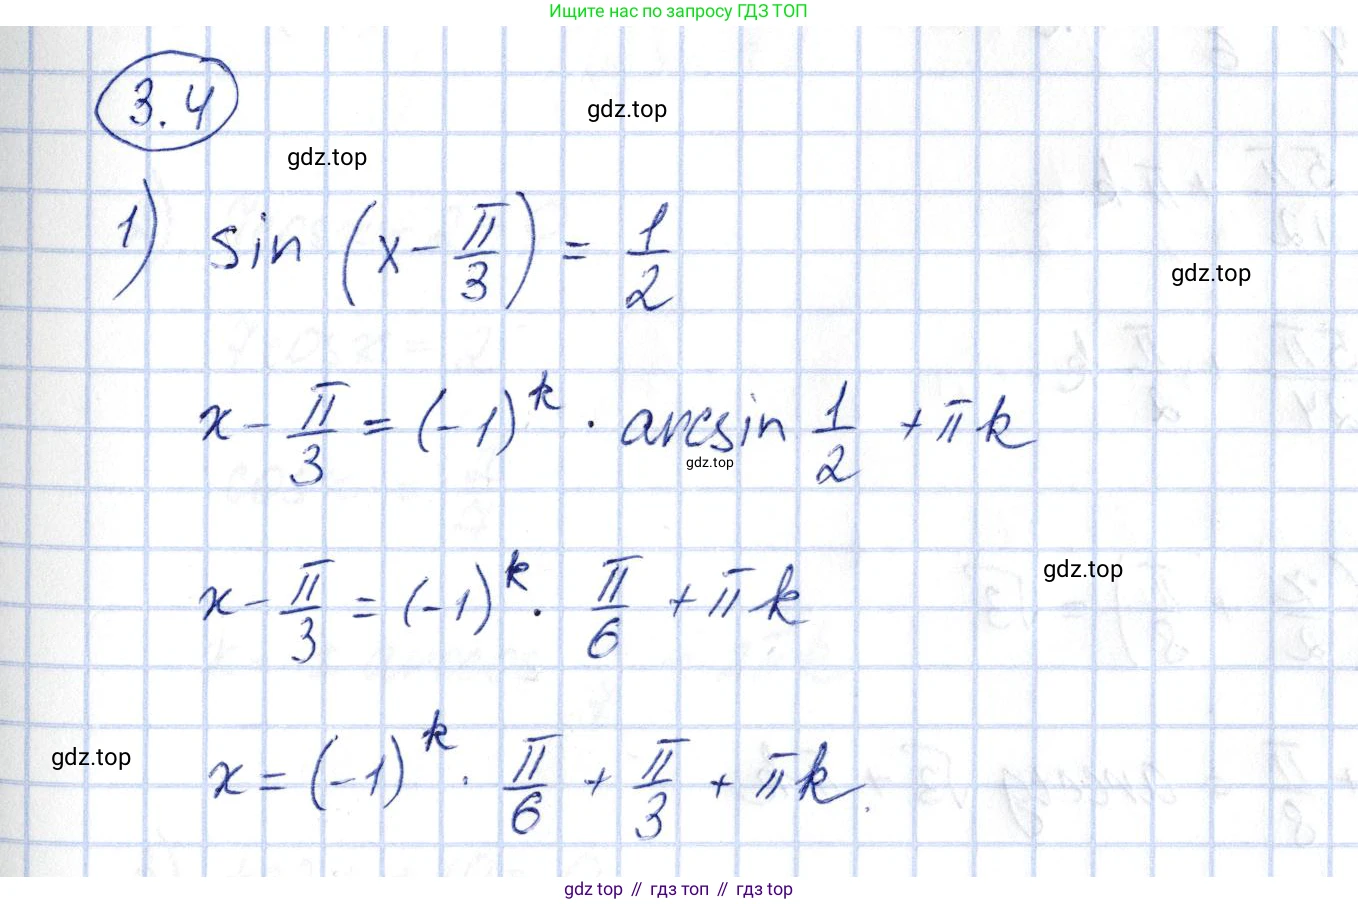 Ищите нас по запросу ГДЗ ТОП
3.4
gdz.top
gdz.top
1) sin (x - π/3) = 1/2
gdz.top
x - π/3 = (-1)^k · arcsin 1/2 + πk
gdz.top
x - π/3 = (-1)^k · π/6 + πk
gdz.top
x = (-1)^k · π/6 + π/3 + πk.
gdz.top
gdz top // гдз топ // gdz top